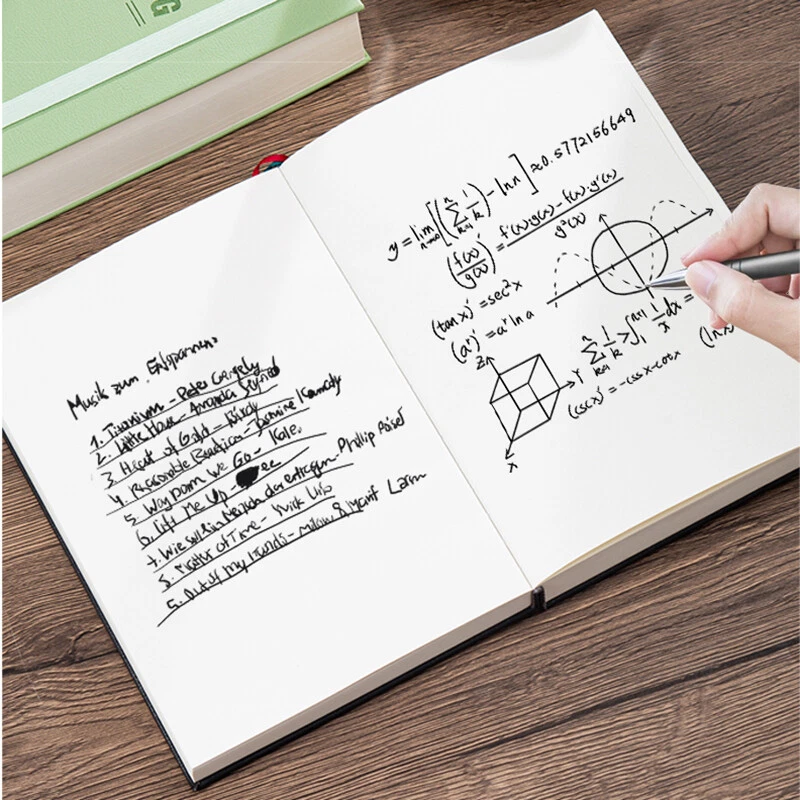 G
Musik zum Entspannen
1. Titanium - Peter Gergely
2. Little House - Amanda Seyfried
3. Heart of Gold - Birdy
4. Reasonable Reaction - Jasmine Kennedy
5. Way Down We Go - Kaleo
6. Lift Me Up
7. Wie soll ein Mensch das ertragen - Phillip Poisel
8. Matter of Time
9. Out of my hands -
y = lim n→∞ [(∑ k=1 n 1/k) - ln n] ≈ 0.5772156649
(f(x)/g(x))' = f'(x)·g(x) - f(x)·g'(x) / g²(x)
(tan x)' = sec²x
(aˣ)' = aˣ ln a
∑ k=1 n 1/k > ∫ 1 n+1 1/x dx =
(ln x)
(csc x)' = -csc x · cot x
Z
Y
X